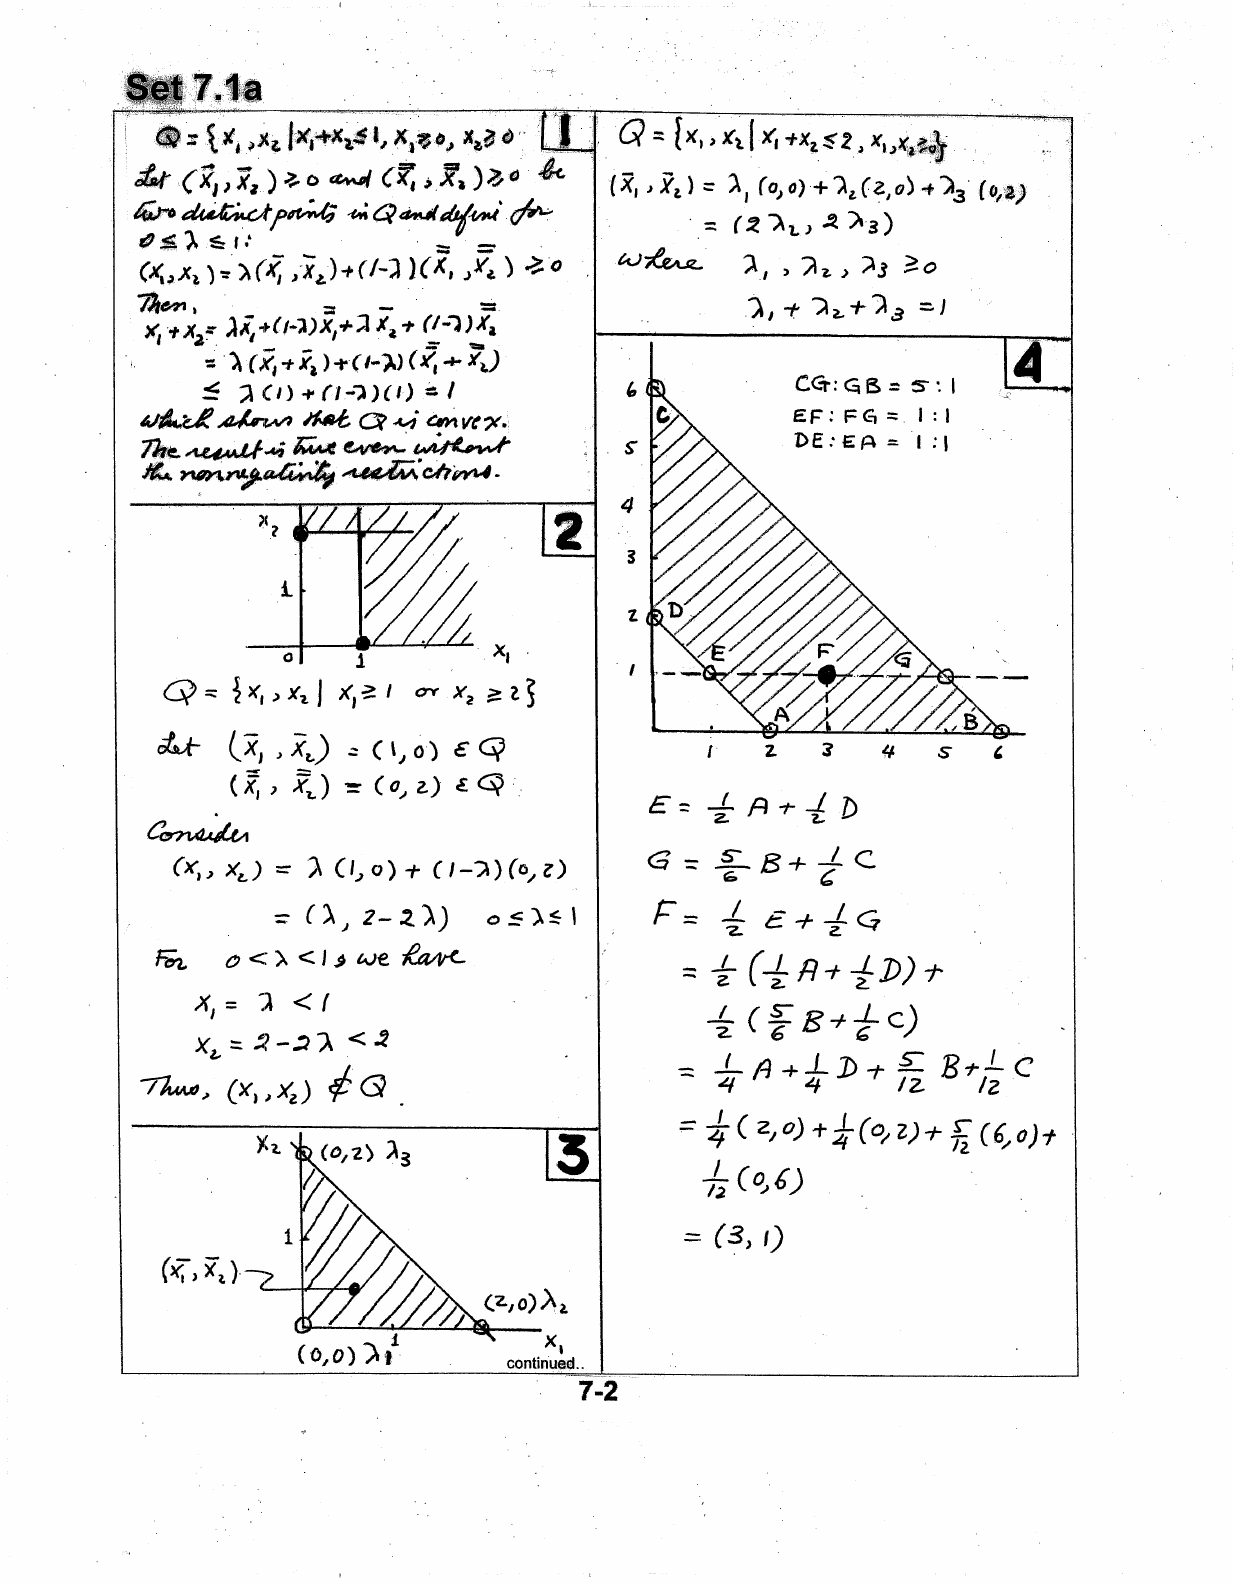 Set 7.1a
Q = {x₁, x₂ | x₁+x₂ ≤ 1, x₁ ≥ 0, x₂ ≥ 0
1
Let (x̄₁, x̄₂) ≥ 0 and (x̿₁, x̿₂) ≥ 0 be
two distinct points in Q and define for
0 ≤ λ ≤ 1:
(x₁, x₂) = λ(x̄₁, x̄₂) + (1-λ)(x̿₁, x̿₂) ≥ 0
Then,
x₁ + x₂ = λx̄₁ + (1-λ)x̿₁ + λx̄₂ + (1-λ)x̿₂
= λ(x̄₁ + x̄₂) + (1-λ)(x̿₁ + x̿₂)
≤ λ(1) + (1-λ)(1) = 1
which shows that Q is convex.
The result is true even without
the nonnegativity restrictions.
2
x₂
1
0
1
x₁
Q = {x₁, x₂ | x₁ ≥ 1 or x₂ ≥ 2}
Let (x̄₁, x̄₂) = (1, 0) ε Q
(x̿₁, x̿₂) = (0, 2) ε Q
Consider
(x₁, x₂) = λ(1, 0) + (1-λ)(0, 2)
= (λ, 2-2λ) 0 ≤ λ ≤ 1
For 0 < λ < 1, we have
x₁ = λ < 1
x₂ = 2-2λ < 2
Thus, (x₁, x₂) ∉ Q.
3
x₂ (0,2) λ₃
1
(x̄₁, x̄₂)
(2,0) λ₂
1
x₁
(0,0) λ₁
continued..
Q = {x₁, x₂ | x₁+x₂ ≤ 2, x₁, x₂ ≥ 0}
(x̄₁, x̄₂) = λ₁(0,0) + λ₂(2,0) + λ₃(0,2)
= (2λ₂, 2λ₃)
where λ₁, λ₂, λ₃ ≥ 0
λ₁ + λ₂ + λ₃ = 1
4
CG:GB = 5:1
EF:FG = 1:1
DE:EA = 1:1
6
C
5
4
3
2 D
E F G
1
A B
1 2 3 4 5 6
E = 1/2 A + 1/2 D
G = 5/6 B + 1/6 C
F = 1/2 E + 1/2 G
= 1/2 (1/2 A + 1/2 D) +
1/2 (5/6 B + 1/6 C)
= 1/4 A + 1/4 D + 5/12 B + 1/12 C
= 1/4 (2,0) + 1/4 (0,2) + 5/12 (6,0) +
1/12 (0,6)
= (3, 1)
7-2